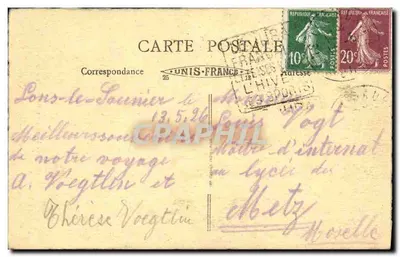 CARTE POSTALE
REPUBLIQUE FRANÇAISE
10c
POSTES
20c
POSTES
Correspondance
UNIS-FRANCE
Adresse
L'HIV
SPORTS
Lons-le-Saunier le
13.5.26
Louis Vogt
Meilleurs
Maître d'internat
de notre voyage
au lycée de
A. Voegtlin et
Metz
Thérèse Voegtlin
Moselle
CARTORUM